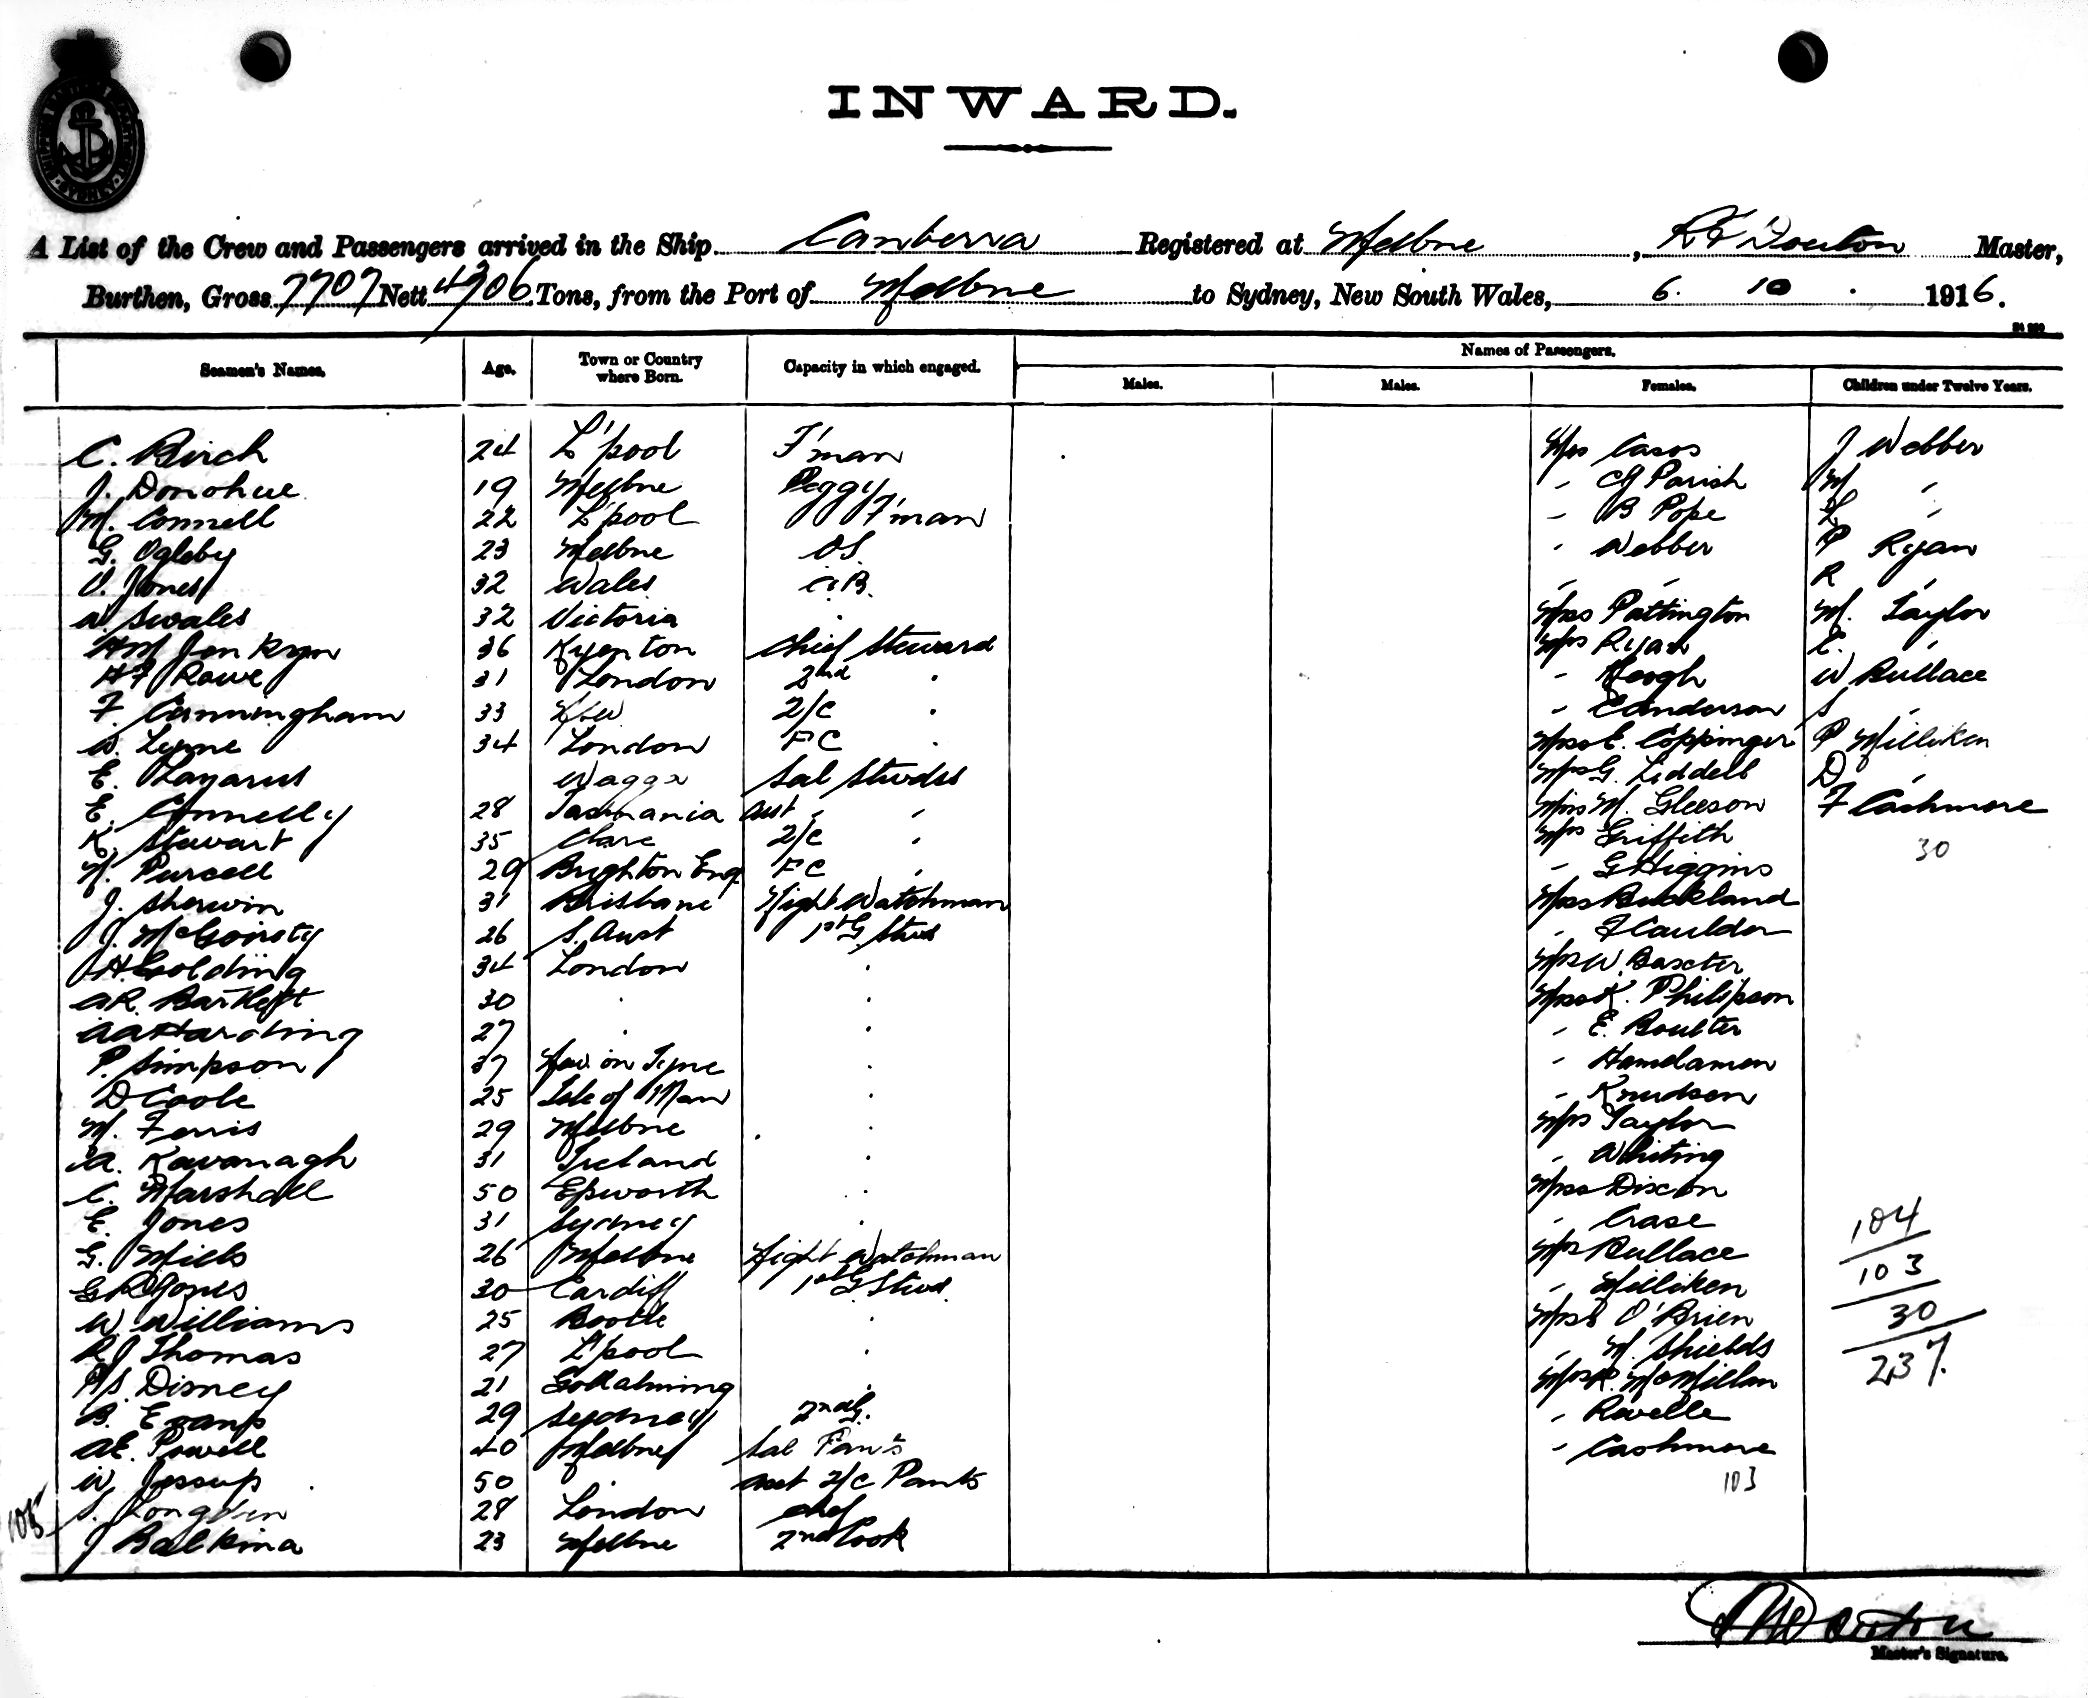 INWARD.
A List of the Crew and Passengers arrived in the Ship Canberra Registered at Melbne, Master,
Burthen, Gross 7707 Nett 4706 Tons, from the Port of Melbne to Sydney, New South Wales, 6. 10. 1916.
Names of Passengers.
Seamen's Names. Age. Town or Country where Born. Capacity in which engaged. Males. Males. Females. Children under Twelve Years.
C. Birch 24 L'pool F'man Mrs Casos J Webber
J. Donohue 19 Melbne Peggy - CJ Parish M "
M. Connell 22 L'pool F'man - B Pope L "
G. Ogleby 23 Melbne OS. - Webber P Ryan
O. Jones 32 Wales - - R "
W. Swales 32 Victoria Miss Pattington M. Taylor
HM Jenkyn 36 Kyenton Chief Steward Mrs Ryan E. "
HF Rowe 31 London 2nd " - Keogh W Bullace
F. Cunningham 33 2/C " - E Anderson S "
W. Lyne 34 London FC " Miss E. Coppinger P Milliken
E. Lazarus Wagga Sal Stwdss Mrs G. Liddell D "
E. Connelly 28 Tasmania Asst " " Miss M. Gleeson F Cashmore
K. Stewart 35 Clare 2/C " Mrs Griffith 30
M. Purcell 29 Brighton Eng FC " - G Higgins
J. Sherwin 31 Brisbane Night Watchman Miss Buckland
J. McGority 26 S. Aust 1st G. Stwd - F Caulder
H. Golding 34 London " Mrs W. Baxter
AR. Bartlett 30 " " Miss K. Philipson
AA Harding 27 " " - E. Boulter
P. Simpson 37 New on Tyne " - Hamdamen
D Coole 25 Isle of Man " - Knudsen
M. Ferris 29 Melbne " Mrs Taylor
A. Kavanagh 31 Ireland " - Whiting
C. Marshall 50 Epworth " Miss Dixon
E. Jones 31 Sydney " - Crase 104
G. Mills 26 Melbne Night Watchman Mrs Bullace 103
GR Jones 30 Cardiff 1st G Stwd - Milliken 30
W. Williams 25 Bootle " O'Brien 237
RJ Thomas 27 L'pool " - M. Shields
Disney 21 Godalming " McMillan
B. Evans 29 Sydney 2nd G. - Revelle
AE. Powell 40 Melbne Sal Pan's - Cashmore
W. Jessup 50 " Asst 2/C Pants 103
105 S. Longden 28 London Chef
J Balkina 23 Melbne 2nd Cook
Master's Signature.